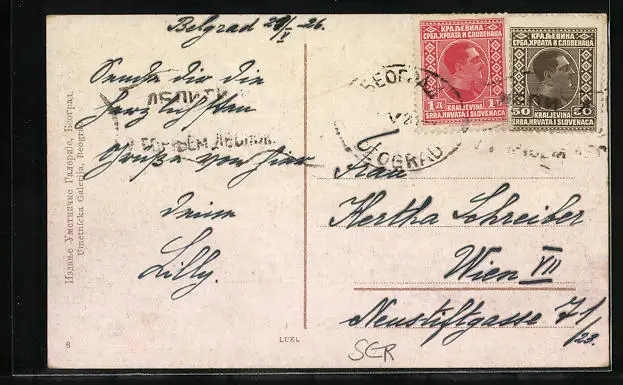 Belgrad 20/V 26.
Sende dir die
herzlichsten
Grüße von hier
deine
Lilly.
Издање Уметничке Галерије, Београд.
Umetnička Galerija, Beograd.
8
LUEL
КРАЉЕВИНА
СРБА, ХРВАТА И СЛОВЕНАЦА
1Д 1D
KRALJEVINA
SRBA, HRVATA I SLOVENACA
КРАЉЕВИНА
СРБА, ХРВАТА И СЛОВЕНАЦА
50 50
KRALJEVINA
SRBA, HRVATA I SLOVENACA
БЕОГРАД
BEOGRAD
Frau
Hertha Schreiber
Wien VII
Neustiftgasse 71/23.
SCR